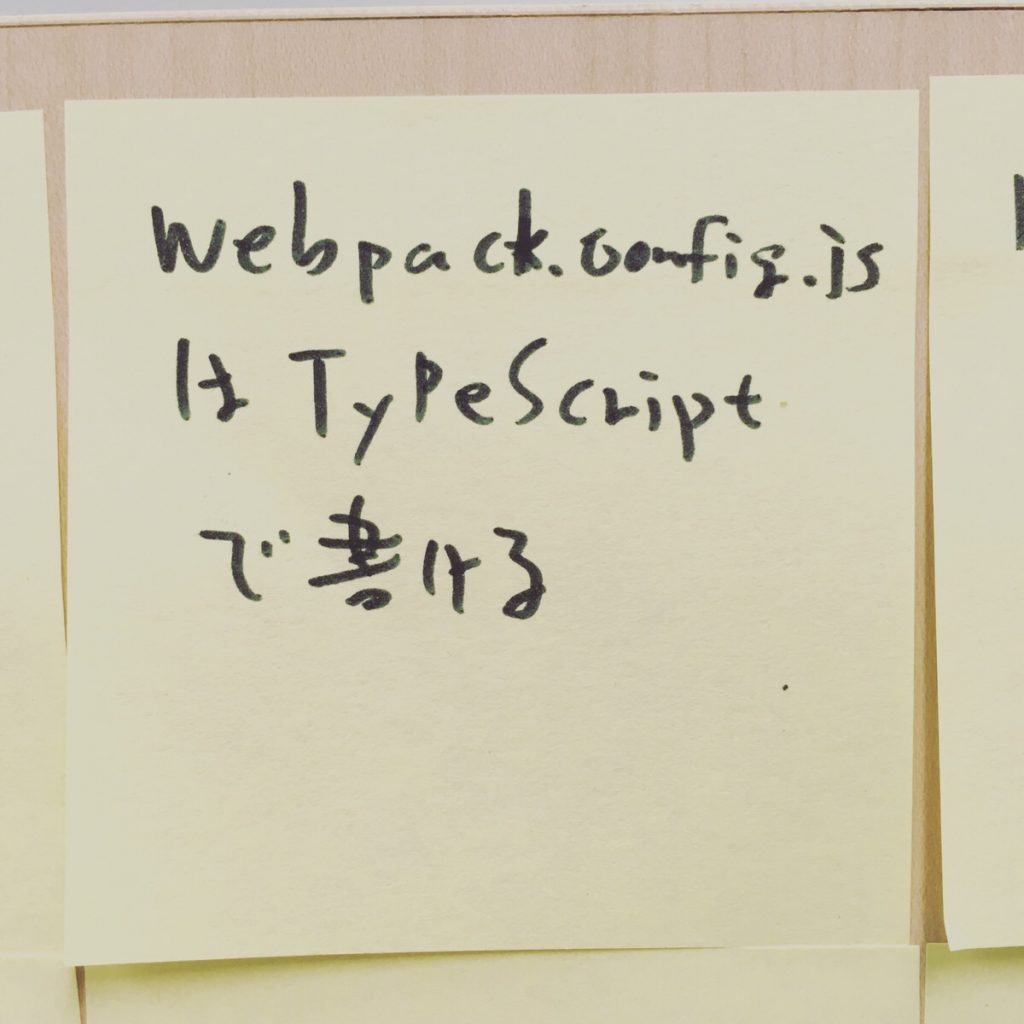 webpack.config.js
は TypeScript
で書ける